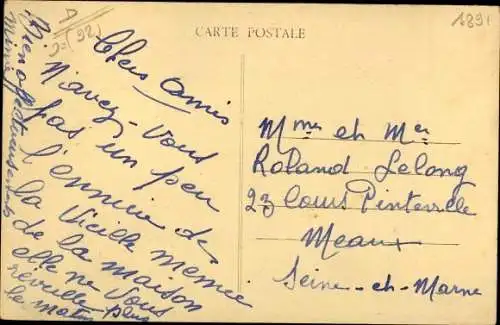 CARTE POSTALE
1891
D
(92)
Chers Amis
N'avez-vous
pas un peu
l'ennuie de
la vieille memée
de la maison
elle ne vous
réveille plus
le matin
Bien affectueusement
Mimi
Mme et Mer
Roland Lelong
23 Cours Pinteville
Meaux
Seine-et-Marne